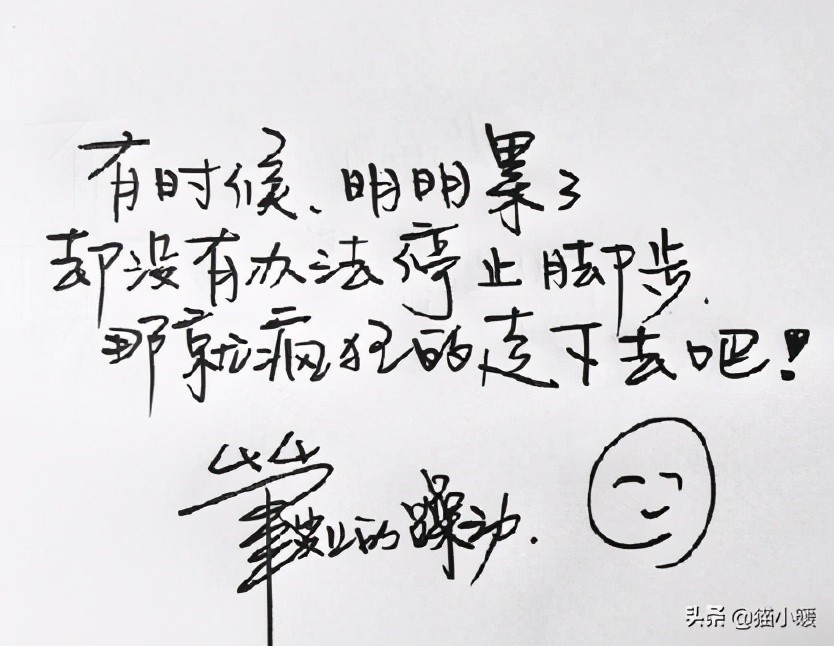 有时候、明明累了
却没有办法停止脚步.
那就疯狂的走下去吧!
的躁动.
头条 @猫小暖